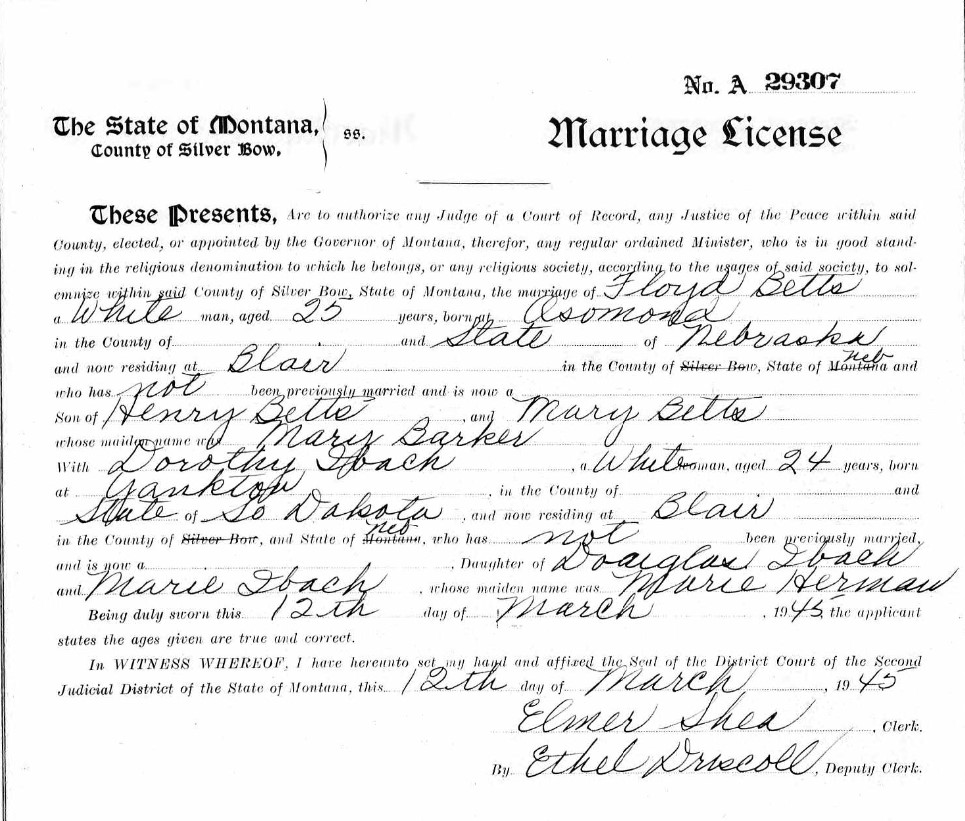 No. A 29307
The State of Montana, ss.
County of Silver Bow.
Marriage License
These Presents, Are to authorize any Judge of a Court of Record, any Justice of the Peace within said
County, elected, or appointed by the Governor of Montana, therefor, any regular ordained Minister, who is in good stand-
ing in the religious denomination to which he belongs, or any religious society, according to the usages of said society, to sol-
emnize within said County of Silver Bow, State of Montana, the marriage of Floyd Betts
a White man, aged 25 years, born at Osomond
in the County of and State of Nebraska
and now residing at Blair in the County of Silver Bow, State of Montana Neb and
who has not been previously married and is now a
Son of Henry Betts and Mary Betts
whose maiden name was Mary Barker
With Dorothy Ibach, a White woman, aged 24 years, born
at Yankton, in the County of and
State of So Dakota, and now residing at Blair
in the County of Silver Bow, and State of Montana, Neb who has not been previously married,
and is now a , Daughter of Douglas Ibach
and Marie Ibach, whose maiden name was Marie Herman
Being duly sworn this 12th day of March, 1945, the applicant
states the ages given are true and correct.
In WITNESS WHEREOF, I have hereunto set my hand and affixed the Seal of the District Court of the Second
Judicial District of the State of Montana, this 12th day of March, 1945
Elmer Shea, Clerk.
By Ethel Driscoll, Deputy Clerk.